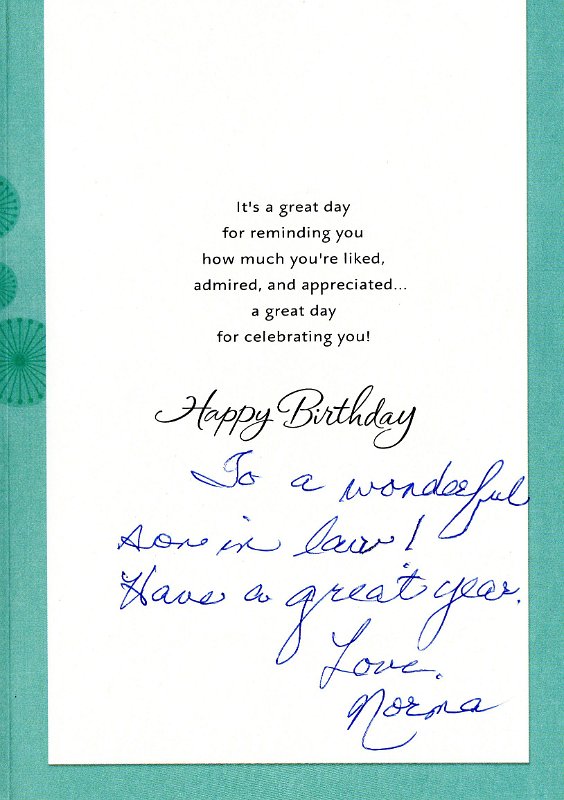 It's a great day
for reminding you
how much you're liked,
admired, and appreciated...
a great day
for celebrating you!
Happy Birthday
To a wonderful
son in law!
Have a great year.
Love,
Norma